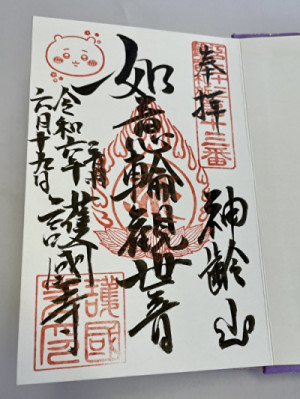 奉拝
神齢山
如意輪観世音
護国寺
令和六年
六月十九日
護國